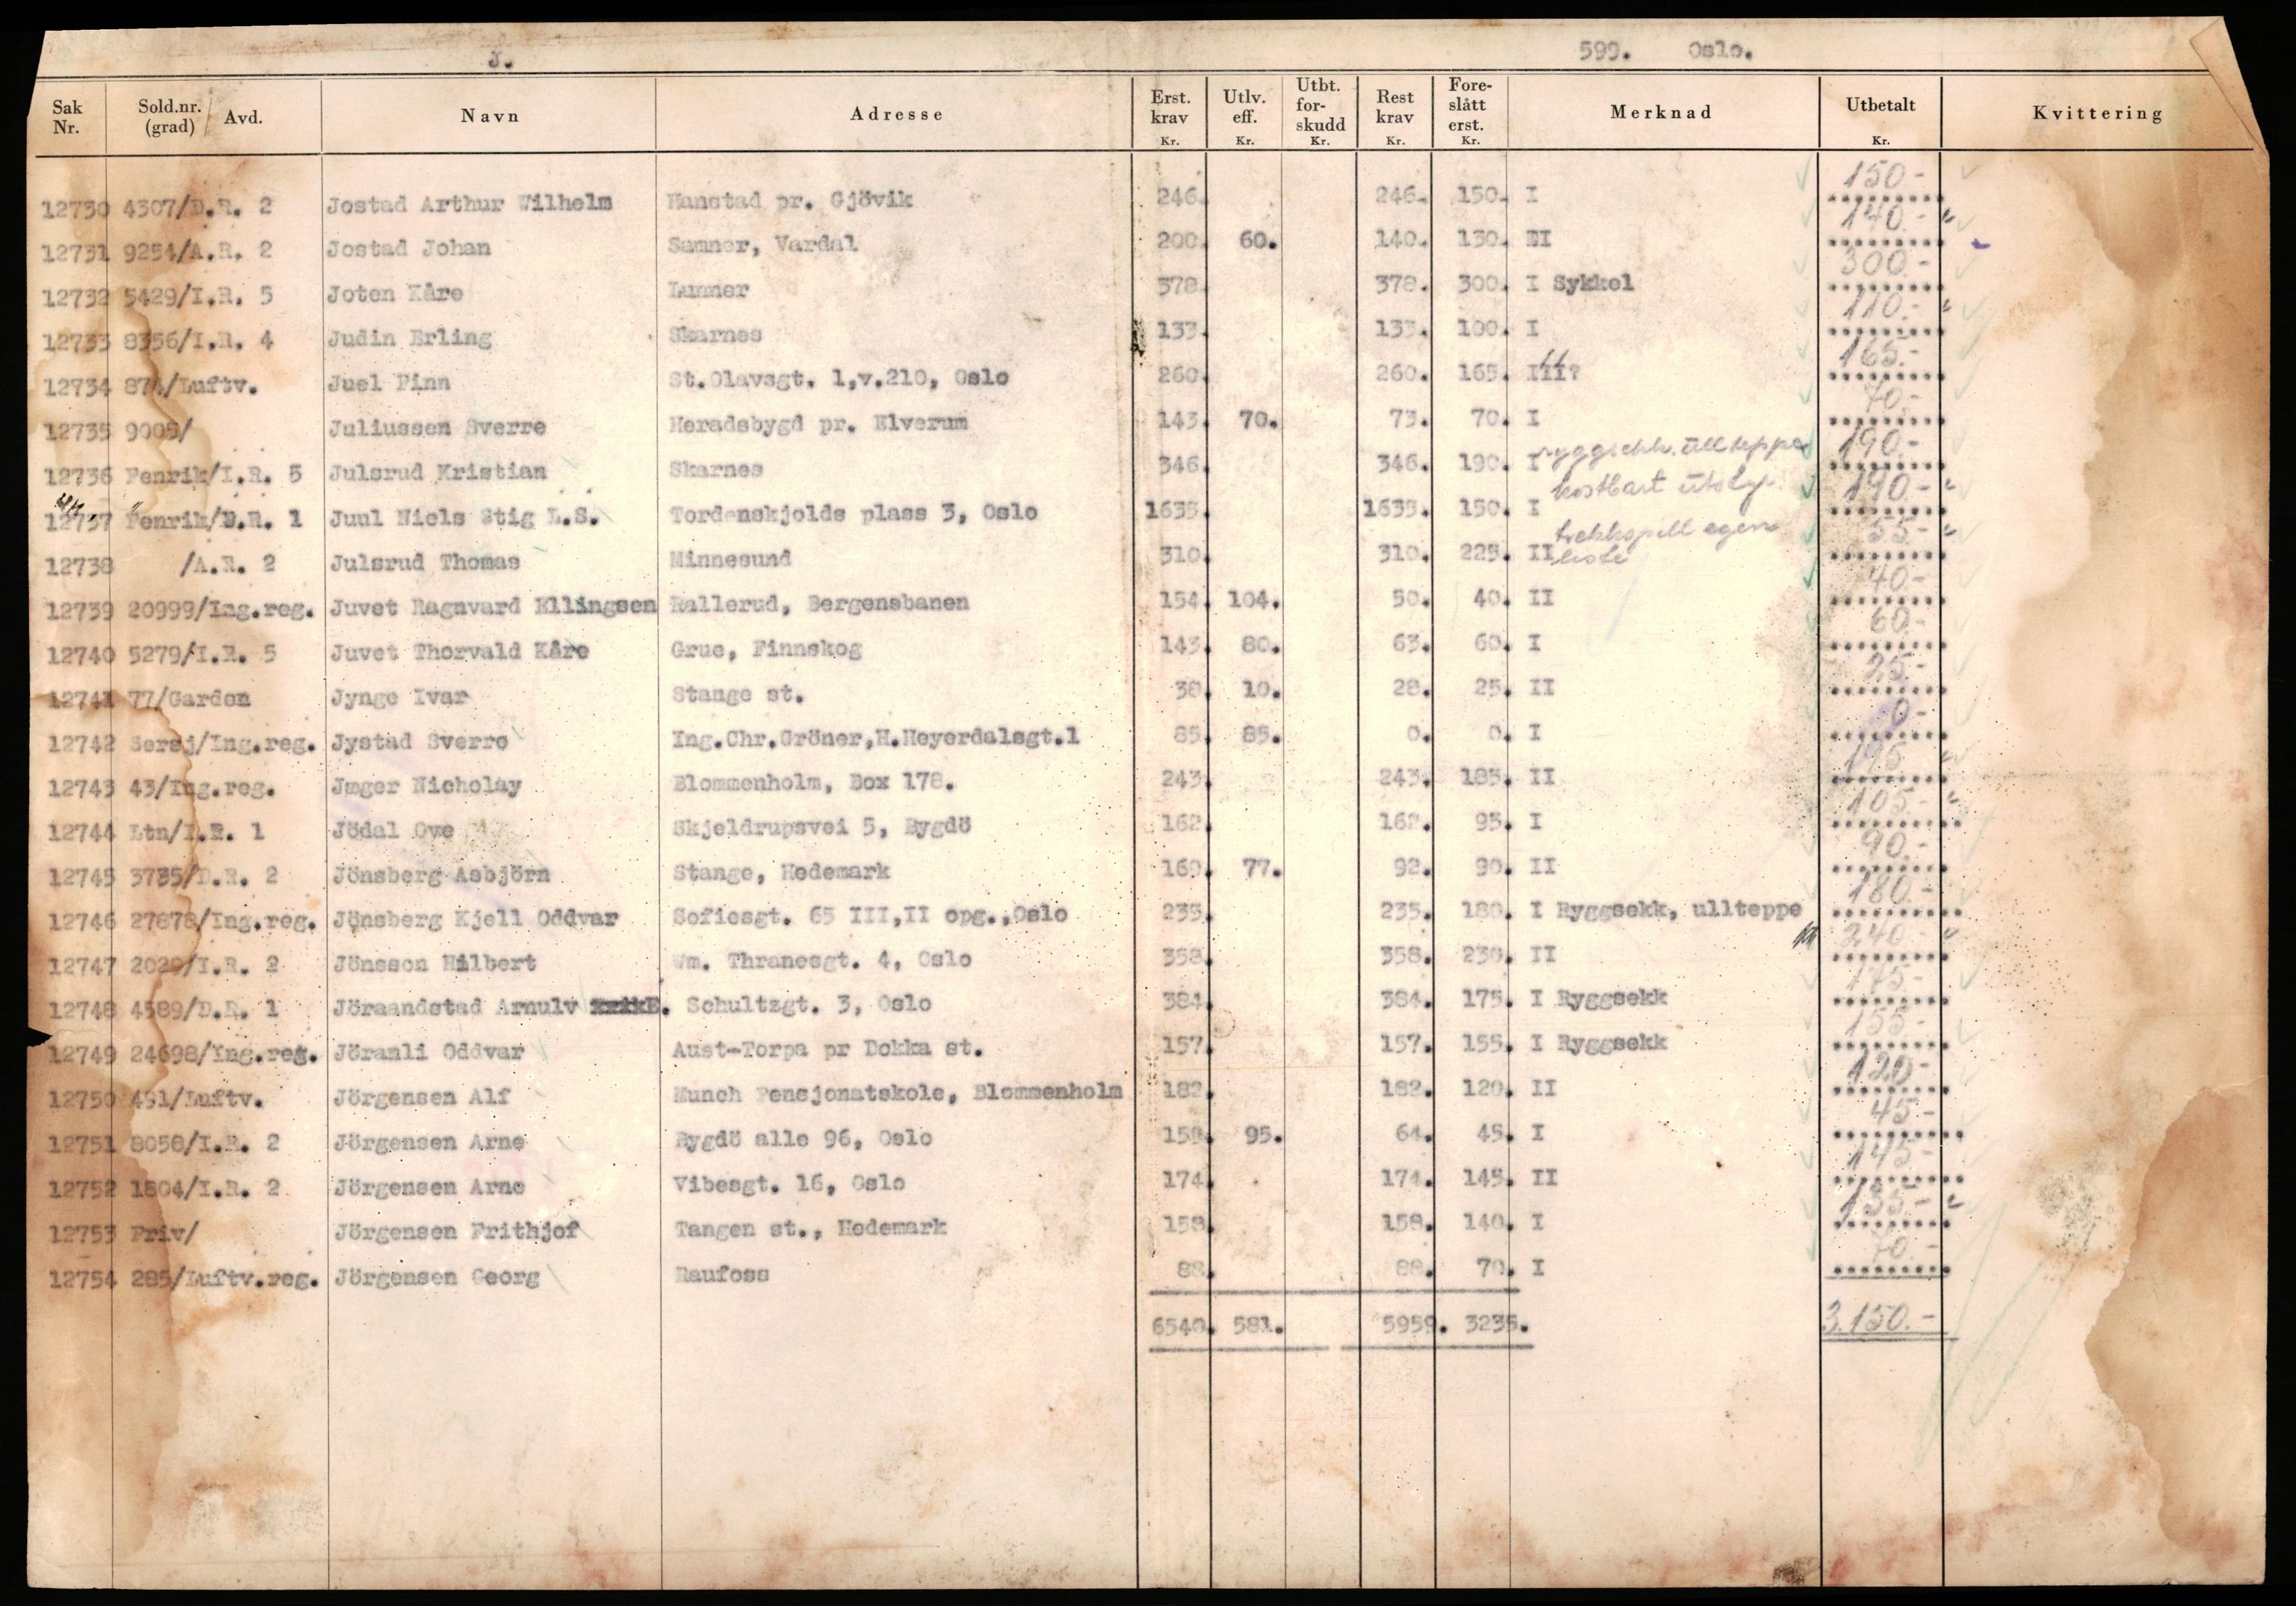 J. 599. Oslo.
Sak Nr. Sold.nr. (grad) / Avd. Navn Adresse Erst. krav Kr. Utlv. eff. Kr. Utbt. for- skudd Kr. Rest krav Kr. Fore- slått erst. Kr. Merknad Utbetalt Kr. Kvittering
12730 4307/D.R. 2 Jostad Arthur Wilhelm Hanstad pr. Gjövik 246. 246. 150. I 150.-
12731 9254/A.R. 2 Jostad Johan Samner, Vardal 200. 60. 140. 130. II 140.-
12732 5429/I.R. 5 Joten Kåre Lunner 378. 378. 300. I Sykkel 300.-
12733 8356/I.R. 4 Judin Erling Skarnes 133. 133. 100. I 110.-
12734 871/Luftv. Juel Finn St.Olavsgt. 1,v.210, Oslo 260. 260. 165. III? 165.-
12735 9005/ Juliussen Sverre Heradsbygd pr. Elverum 143. 70. 73. 70. I 70.-
12736 Fenrik/I.R. 5 Julsrud Kristian Skarnes 346. 346. 190. I ryggsekk. ullteppe 190.-
12737 Fenrik/D.R. 1 Juul Niels Stig L.S. Tordenskjolds plass 3, Oslo 1635. 1635. 150. I kostbart utstyr. 190.-
12738 /A.R. 2 Julsrud Thomas Minnesund 310. 310. 225. II trekkspill egen liste 55.-
12739 20999/Ing.reg. Juvet Ragnvard Ellingsen Rallerud, Bergensbanen 154. 104. 50. 40. II 40.-
12740 5279/I.R. 5 Juvet Thorvald Kåre Grue, Finnskog 143. 80. 63. 60. I 60.-
12741 77/Garden Jynge Ivar Stange st. 38. 10. 28. 25. II 25.-
12742 Sersj/Ing.reg. Jystad Sverre Ing.Chr.Gröner,H.Heyerdalsgt.1 85. 85. 0. 0. I 0.-
12743 43/Ing.reg. Jæger Nicholay Blommenholm, Box 178. 243. 243. 185. II 195.-
12744 Ltn/I.R. 1 Jödal Ove Skjeldrupsvei 5, Bygdö 162. 162. 95. I 105.-
12745 3735/D.R. 2 Jönsberg Asbjörn Stange, Hedemark 169. 77. 92. 90. II 90.-
12746 27878/Ing.reg. Jönsberg Kjell Oddvar Sofiesgt. 65 III,II opg.,Oslo 235. 235. 180. I Ryggsekk, ullteppe 180.-
12747 2029/I.R. 2 Jönsson Hilbert Wm. Thranesgt. 4, Oslo 358. 358. 230. II 240.-
12748 4589/D.R. 1 Jöraandstad Arnulv E. Schultzgt. 3, Oslo 384. 384. 175. I Ryggsekk 175.-
12749 24698/Ing.reg. Jöranli Oddvar Aust-Torpa pr Dokka st. 157. 157. 155. I Ryggsekk 155.-
12750 491/Luftv. Jörgensen Alf Munch Pensjonatskole, Blommenholm 182. 182. 120. II 120.-
12751 8058/I.R. 2 Jörgensen Arne Bygdö alle 96, Oslo 159. 95. 64. 45. I 45.-
12752 1804/I.R. 2 Jörgensen Arne Vibesgt. 16, Oslo 174. 174. 145. II 145.-
12753 Friv/ Jörgensen Frithjof Tangen st., Hedemark 158. 158. 140. I 135.-
12754 285/Luftv.reg. Jörgensen Georg Raufoss 88. 88. 70. I 70.-
6540. 581. 5959. 3235. 3.150.-